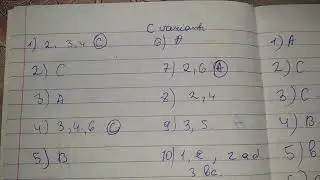 C variant
1) 2, 3,4 C
2) C
3) A
4) 3,4,6 C
5) B
6) A
7) 2,6 A
8) 2,4
9) 3,5
10) 1, 2 ad
3 bc.
1) A
2) C
3) C
4) B
5) B